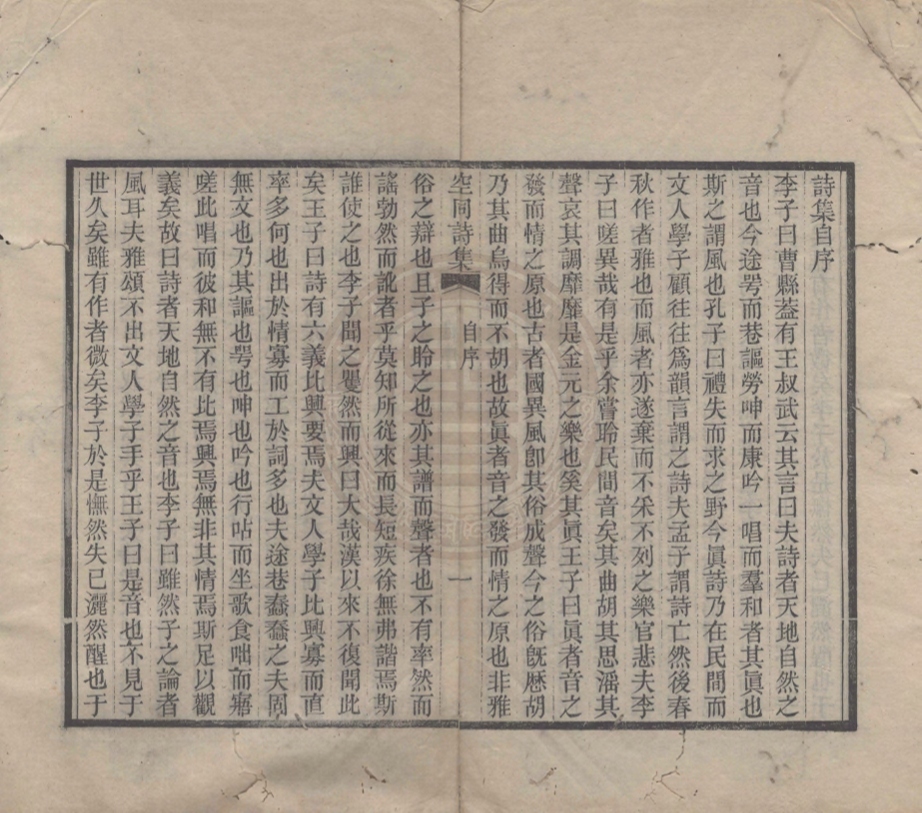 詩集自序
李子曰曹縣葢有王叔武云其言曰夫詩者天地自然之
音也今途咢而巷謳勞呻而康吟一唱而羣和者其眞也
斯之謂風也孔子曰禮失而求之野今眞詩乃在民間而
文人學子顧往往爲韻言謂之詩夫孟子謂詩亡然後春
秋作者雅也而風者亦遂棄而不采不列之樂官悲夫李
子曰嗟異哉有是乎余嘗聆民間音矣其曲胡其思淫其
聲哀其調靡靡是金元之樂也奚其眞王子曰眞者音之
發而情之原也古者國異風卽其俗成聲今之俗旣歷胡
乃其曲烏得而不胡也故眞者音之發而情之原也非雅
空同詩集 自序 一
俗之辯也且子之聆之也亦其譜而聲者也不有率然而
謠勃然而訛者乎莫知所從來而長短疾徐無弗諧焉斯
誰使之也李子聞之矍然而興曰大哉漢以來不復聞此
矣王子曰詩有六義比興要焉夫文人學子比興寡而直
率多何也出於情寡而工於詞多也夫途巷蠢蠢之夫固
無文也乃其謳也咢也呻也吟也行呫而坐歌食咄而寤
嗟此唱而彼和無不有比焉興焉無非其情焉斯足以觀
義矣故曰詩者天地自然之音也李子曰雖然子之論者
風耳夫雅頌不出文人學子手乎王子曰是音也不見于
世久矣雖有作者微矣李子於是憮然失已灑然醒也于